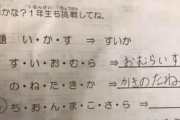 かな?1年生も挑戦してね。
い・か・す ⇒ すいか
す・い・お・む・ら ⇒ おむらいす
の・ね・た・き・か ⇒ かきのたね
ち・お・ん・ま・こ・さ・ら ⇒